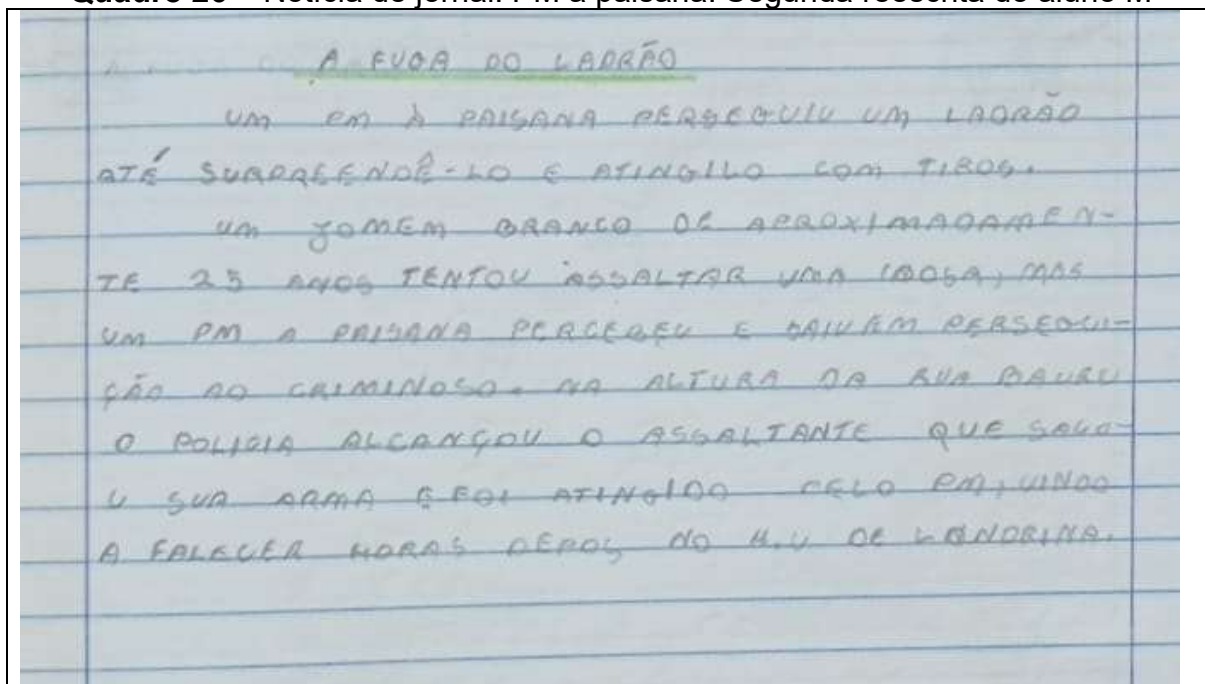 A FUGA DO LADRÃO
UM PM À PAISANA PERSEGUIU UM LADRÃO
ATÉ SURPREENDÊ-LO E ATINGILO COM TIROS.
UM JOMEM BRANCO DE APROXIMADAMEN-
TE 25 ANOS TENTOU ASSALTAR UMA IDOSA, MAS
UM PM A PAISANA PERCEBEU E SAIU EM PERSEGUI-
ÇÃO AO CRIMINOSO. NA ALTURA DA RUA BAURU
O POLICIA ALCANÇOU O ASSALTANTE QUE SACO-
U SUA ARMA E FOI ATINGIDO PELO PM, VINDO
A FALECER HORAS DEPOS NO H.U DE LONDRINA.